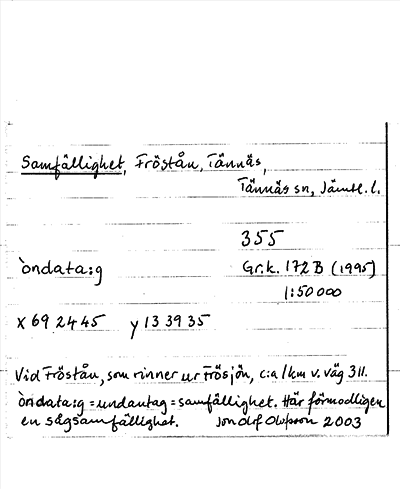 Samfällighet, Fröstån, Tännäs,
Tännäs sn, Jämtl. l.
355
òndata:g Gr.k. 172 B (1995)
1:50 000
x 69 24 45 y 13 39 35
Vid Fröstån, som rinner ur Frösjön, c:a 1 km v. väg 311.
òndata:g = undantag = samfällighet. Här förmodligen
en sågsamfällighet. Jon Olof Olofsson 2003